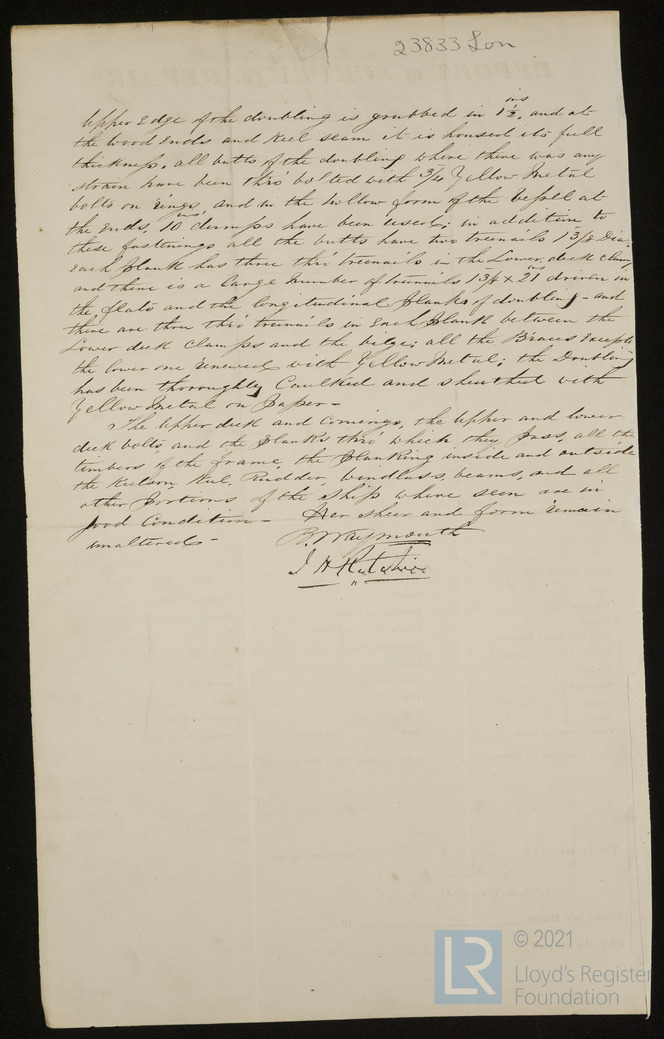 23833 Lon
Upper Edge of the doubling is grubbed in 1½ ins, and at
the wood Ends and Keel seam it is housed its full
thickness, all butts of the doubling where there was any
strain have been thro' bolted with 3/4 Yellow Metal
bolts on rings, and in the hollow form of the vessel at
the Ends, 10 ins clumps have been used; in addition to
these fastenings all the butts have two treenails 1 3/8 Dia.
Each plank has three thro' treenails in the Lower deck Clamp
and there is a large number of treenails 1 3/8 x 21 ins driven in
the flats and the longitudinal planks of doubling - and
there are three thro' treenails in Each plank between the
Lower deck Clamps and the bilge; all the Braces Except
the lower one renewed with Yellow Metal; the Doubling
has been thoroughly Caulked and sheathed with
Yellow Metal on Paper -
The Upper deck and Comings, the Upper and lower
deck bolts, and the planks thro' which they pass, all the
timbers of the frame, the planking inside and outside
the Keelson Keel Rudder, Windlass, beams, and all
other portions of the Ship where seen are in
good Condition - Her sheer and form remain
unaltered -
B. Waymouth
J H
© 2021
LR
Lloyd's Register
Foundation